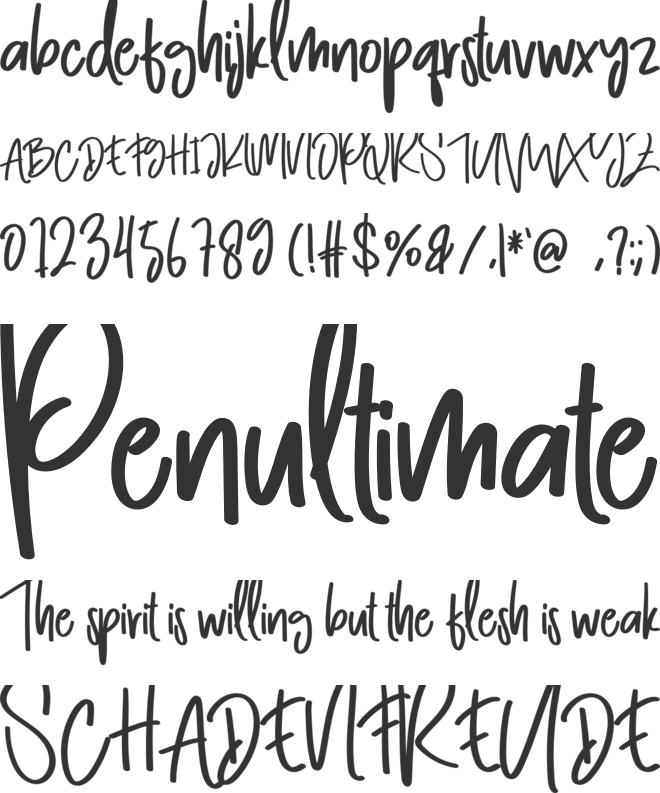 abcdefghijklmnopqrstuvwxyz
ABCDEFGHIJKLMNOPQRSTUVWXYZ
0123456789 (!#$%&/.|*`@ ,?:;)
Penultimate
The spirit is willing but the flesh is weak
SCHADENFREUDE